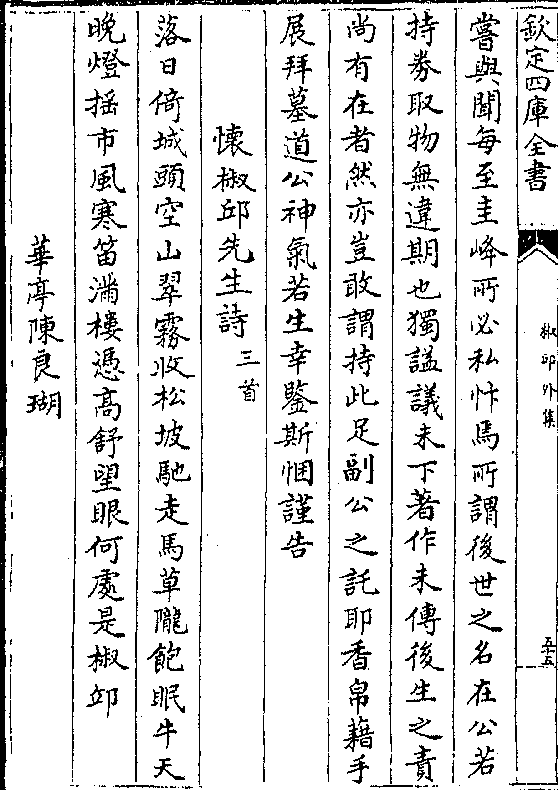 欽定四庫全書
椒邱外集
五十五
嘗與聞每至圭峰所必私忭焉所謂後世之名在公若
持券取物無違期也獨謚議未下著作未傳後生之責
尚有在者然亦豈敢謂持此足副公之託耶香帛藉手
展拜墓道公神氣若生幸鑒斯悃謹告
懷椒邱先生詩三首
落日倚城頭空山翠霧收松坡馳走馬草隴飽眠牛天
晚燈摇市風寒笛滿樓憑高舒望眼何處是椒邱
華亭陳良瑚